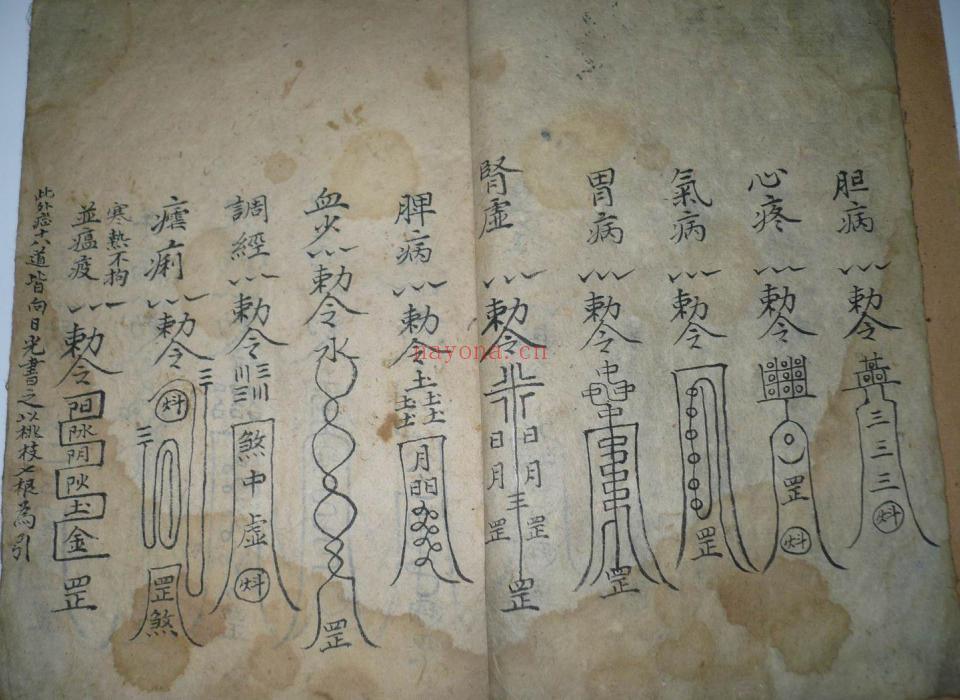 胆病 勅令 三三三
心疼 勅令 罡
氣病 勅令 罡
胃病 勅令 中 罡
腎虛 勅令 日月 日月 罡 罡 罡
脾病 勅令 土土土土土 月
血災 勅令 水 罡
調經 勅令 三川川三 煞中虛
瘧痢 勅令 三 三 罡煞
寒熱不拘
並瘟疫 勅令 阳 阴 土 金 罡
此外 十八道皆向日光書之以桃枝七根為引
nayona.cn